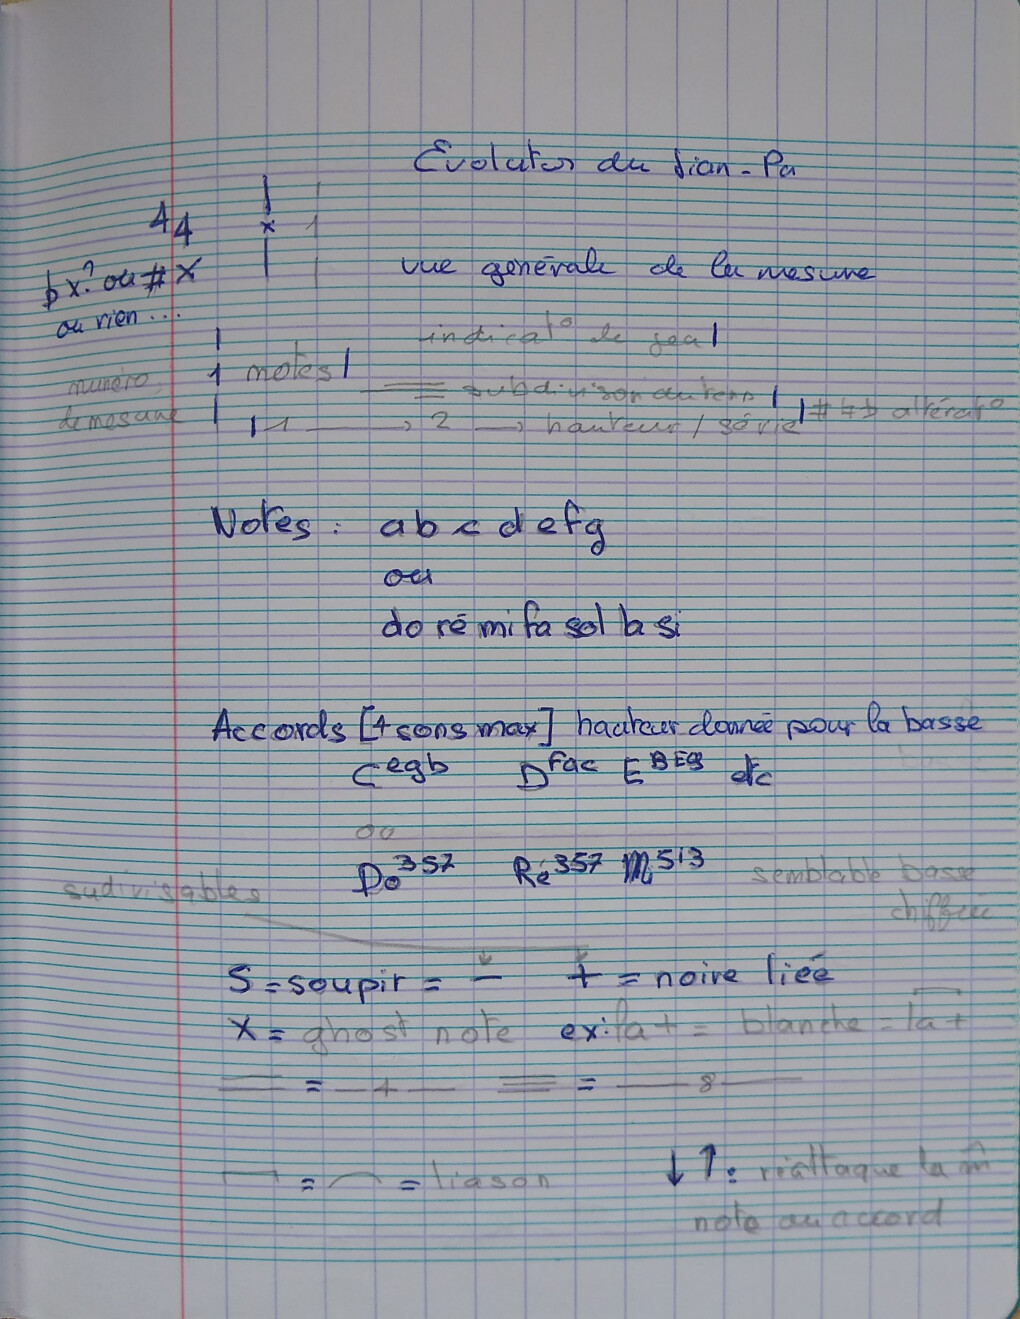 Evolution du Jian-Pu
44
x 1
vue générale de la mesure
b x? ou # x
ou rien...
indicat° de jeu
1 notes
numéro
de mesure
subdivison du temps
1 → 2 → hauteur / série # ♮ b altérat°
Notes : a b c d e f g
ou
do ré mi fa sol la si
Accords [4 sons max] hauteur donnée pour la basse
C egb D fac E BEG etc
ou
Do 357 Ré 357 Mi 513 semblable basse
chiffrée
sudivisables
S = soupir = — + = noire liée
X = ghost note ex: la + = blanche = la +
= 4 = 8
= = liason
↓ ↑ : réattaque la m̂
note ou accord